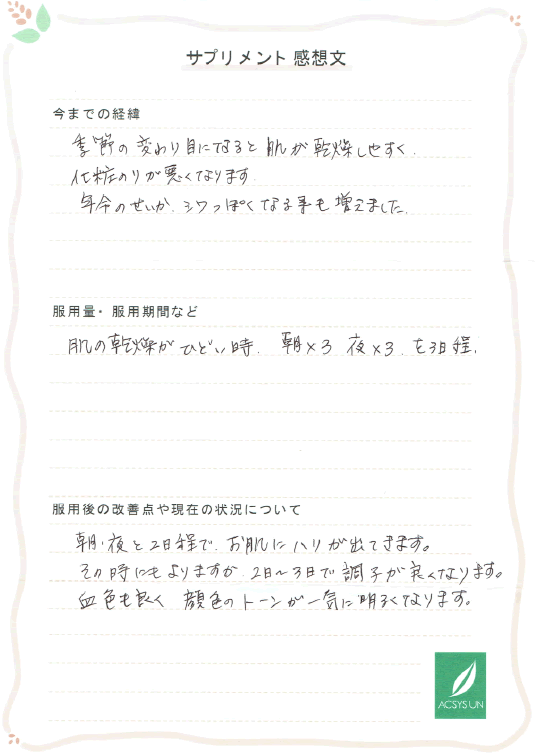 サプリメント 感想文
今までの経緯
季節の変わり目になると肌が乾燥しやすく、
化粧のりが悪くなります
年令のせいか、シワっぽくなる事も増えました。
服用量・服用期間など
肌の乾燥がひどい時、朝×3 夜×3、を3日程、
服用後の改善点や現在の状況について
朝・夜と2日程で、お肌にハリが出てきます。
その時にもよりますが、2日〜3日で調子が良くなります。
血色も良く 顔色のトーンが一気に明るくなります。
ACSYSUN